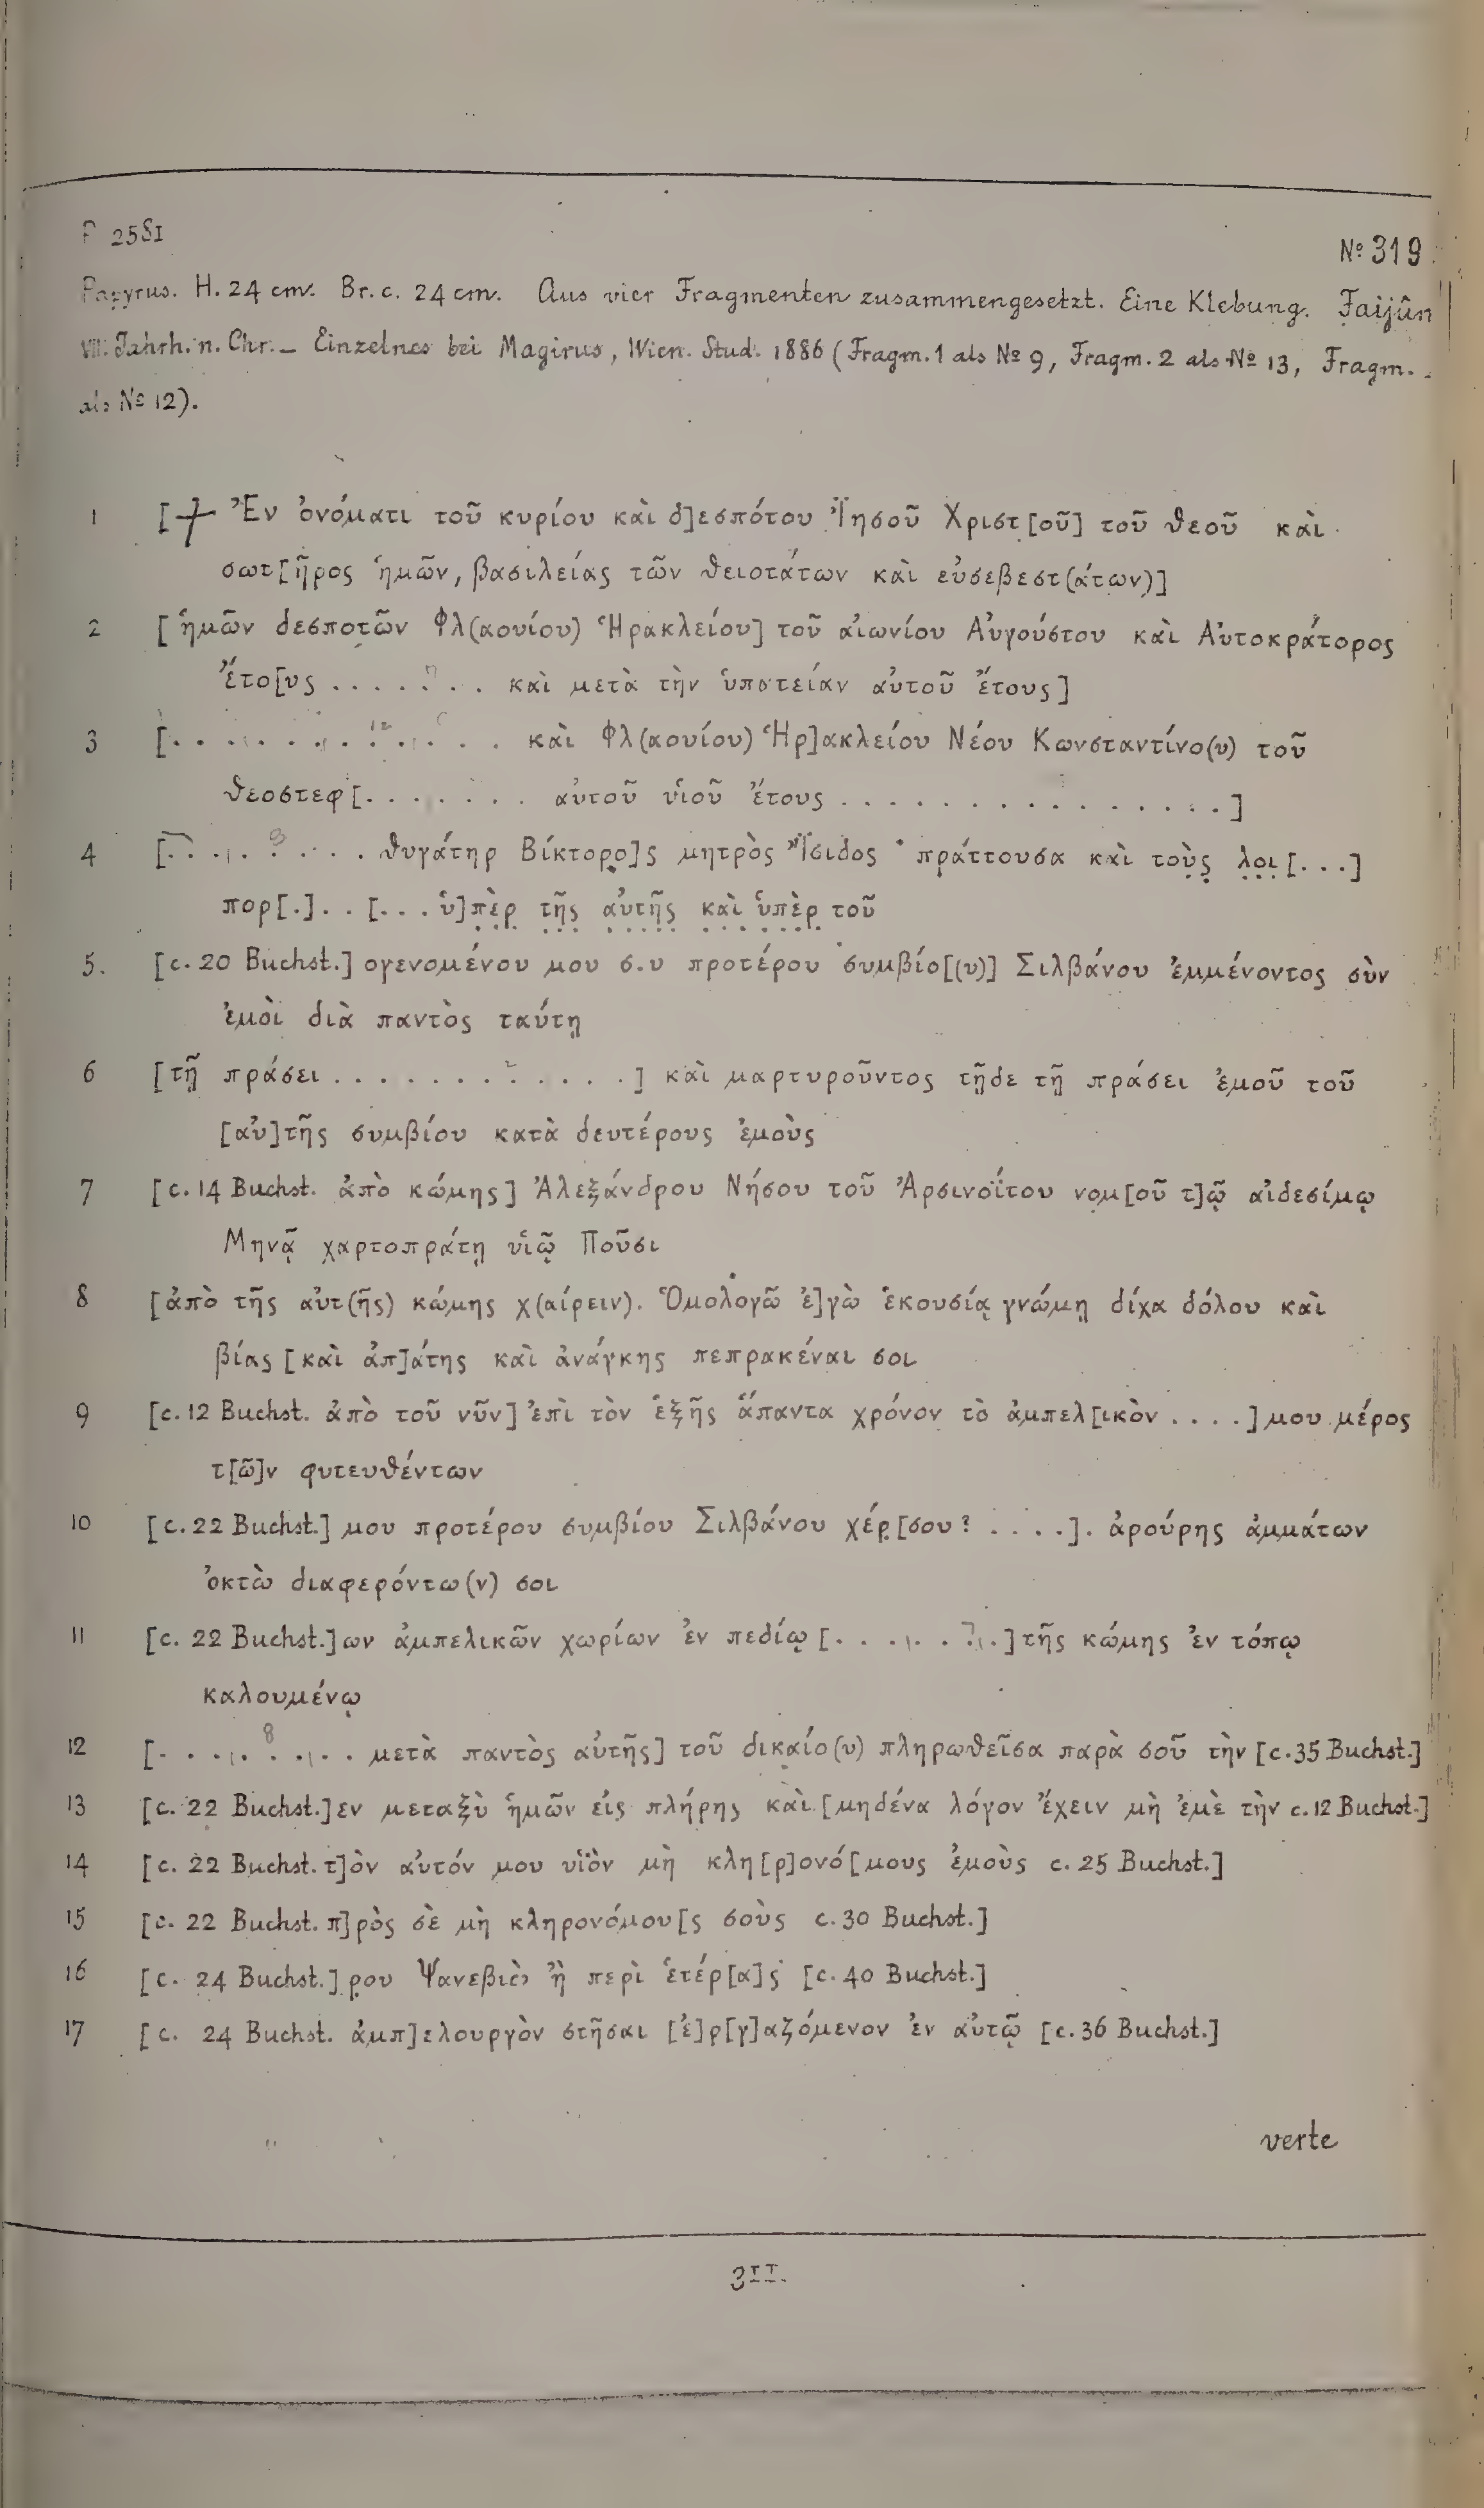 P 2581
№ 319.
Papyrus. H. 24 cm. Br. c. 24 cm. Aus vier Fragmenten zusammengesetzt. Eine Klebung. Faijûm
VII. Jahrh. n. Chr. – Einzelnes bei Magirus, Wien. Stud. 1886 (Fragm. 1 als № 9, Fragm. 2 als № 13, Fragm.
als № 12).
1 [⳨ Ἐν ὀνόματι τοῦ κυρίου καὶ δ]εσπότου Ἰ̈ησοῦ Χριστ[οῦ] τοῦ θεοῦ καὶ
σωτ[ῆρος ἡμῶν, βασιλείας τῶν θειοτάτων καὶ εὐσεβεστ(άτων)]
2 [ἡμῶν δεσποτῶν Φλ(αουίου) Ἡρακλείου] τοῦ αἰωνίου Αὐγούστου καὶ Αὐτοκράτορος
ἔτο[υς . . . . . . . . καὶ μετὰ τὴν ὑπατείαν αὐτοῦ ἔτους]
3 [. . . . . . . . . . . . . . καὶ Φλ(αουίου) Ἡρ]ακλείου Νέου Κωνσταντίνο(υ) τοῦ
θεοστεφ[. . . . . . . . αὐτοῦ υἱοῦ ἔτους . . . . . . . . . . . . . . . .]
4 [. . . . . . . . . θυγάτηρ Βίκτορο]ς μητρὸς Ἴ̈σιδος · πράττουσα καὶ τοὺ̣ς̣ λ̣ο̣ι̣[. . .]
πορ[.] . . [. . . ὑ]π̣ὲ̣ρ̣ τ̣ῆ̣ς̣ α̣ὐ̣τ̣ῆ̣ς̣ κ̣α̣ὶ̣ ὑ̣π̣ὲ̣ρ̣ τοῦ
5. [c. 20 Buchst.] ογενομένου μου σ.υ προτέρου συμβίο[(υ)] Σιλβάνου ἐμμένοντος σὺν
ἐμοὶ διὰ παντὸς ταύτῃ
6 [τῇ πράσει . . . . . . . . . . . . .] καὶ μαρτυροῦντος τῇδε τῇ πράσει ἐμοῦ τοῦ
[αὐ]τῆς συμβίου κατὰ δευτέρους ἐμοὺς
7 [c. 14 Buchst. ἀπὸ κώμης] Ἀλεξάνδρου Νήσου τοῦ Ἀρσινοΐτου νομ[οῦ τ]ῷ αἰδεσίμῳ
Μηνᾷ χαρτοπράτῃ υἱῷ Ποῦσι
8 [ἀπὸ τῆς αὐτ(ῆς) κώμης χ(αίρειν). Ὁμολογῶ ἐ]γὼ ἑκουσίᾳ γνώμῃ δίχα δόλου καὶ
βίας [καὶ ἀπ]άτης καὶ ἀνάγκης πεπρακέναι σοι
9 [c. 12 Buchst. ἀπὸ τοῦ νῦν] ἐπὶ τὸν ἑξῆς ἅπαντα χρόνον τὸ ἀμπελ[ικὸν . . . .] μου μέρος
τ[ῶ]ν φυτευθέντων
10 [c. 22 Buchst.] μου προτέρου συμβίου Σιλβάνου χέρ̣[σου? . . . .]. ἀρούρης ἀμμάτων
ὀκτὼ διαφερόντω(ν) σοι
11 [c. 22 Buchst.]ων ἀμπελικῶν χωρίων ἐν πεδίῳ [. . . . . . . .] τῆς κώμης ἐν τόπῳ
καλουμένῳ
12 [. . . . . . . . . μετὰ παντὸς αὐτῆς] τοῦ δικαίο(υ) πληρωθεῖσα παρὰ σοῦ τὴν [c. 35 Buchst.]
13 [c. 22 Buchst.]εν μεταξὺ ἡμῶν εἰς πλήρης καὶ [μηδένα λόγον ἔχειν μὴ ἐμὲ τὴν c. 12 Buchst.]
14 [c. 22 Buchst. τ]ὸν αὐτόν μου υἱ̈ὸν μὴ κλη[ρ]ονό[μους ἐμοὺς c. 25 Buchst.]
15 [c. 22 Buchst. π]ρὸς σὲ μὴ κληρονόμου[ς σοὺς c. 30 Buchst.]
16 [c. 24 Buchst.] ρ̣ου Ψανεβιὲ ἢ περὶ ἑτέρ[α]ς [c. 40 Buchst.]
17 [c. 24 Buchst. ἀμπ]ελουργὸν στῆσαι [ἐ]ρ[γ]αζόμενον ἐν αὐτῷ [c. 36 Buchst.]
verte